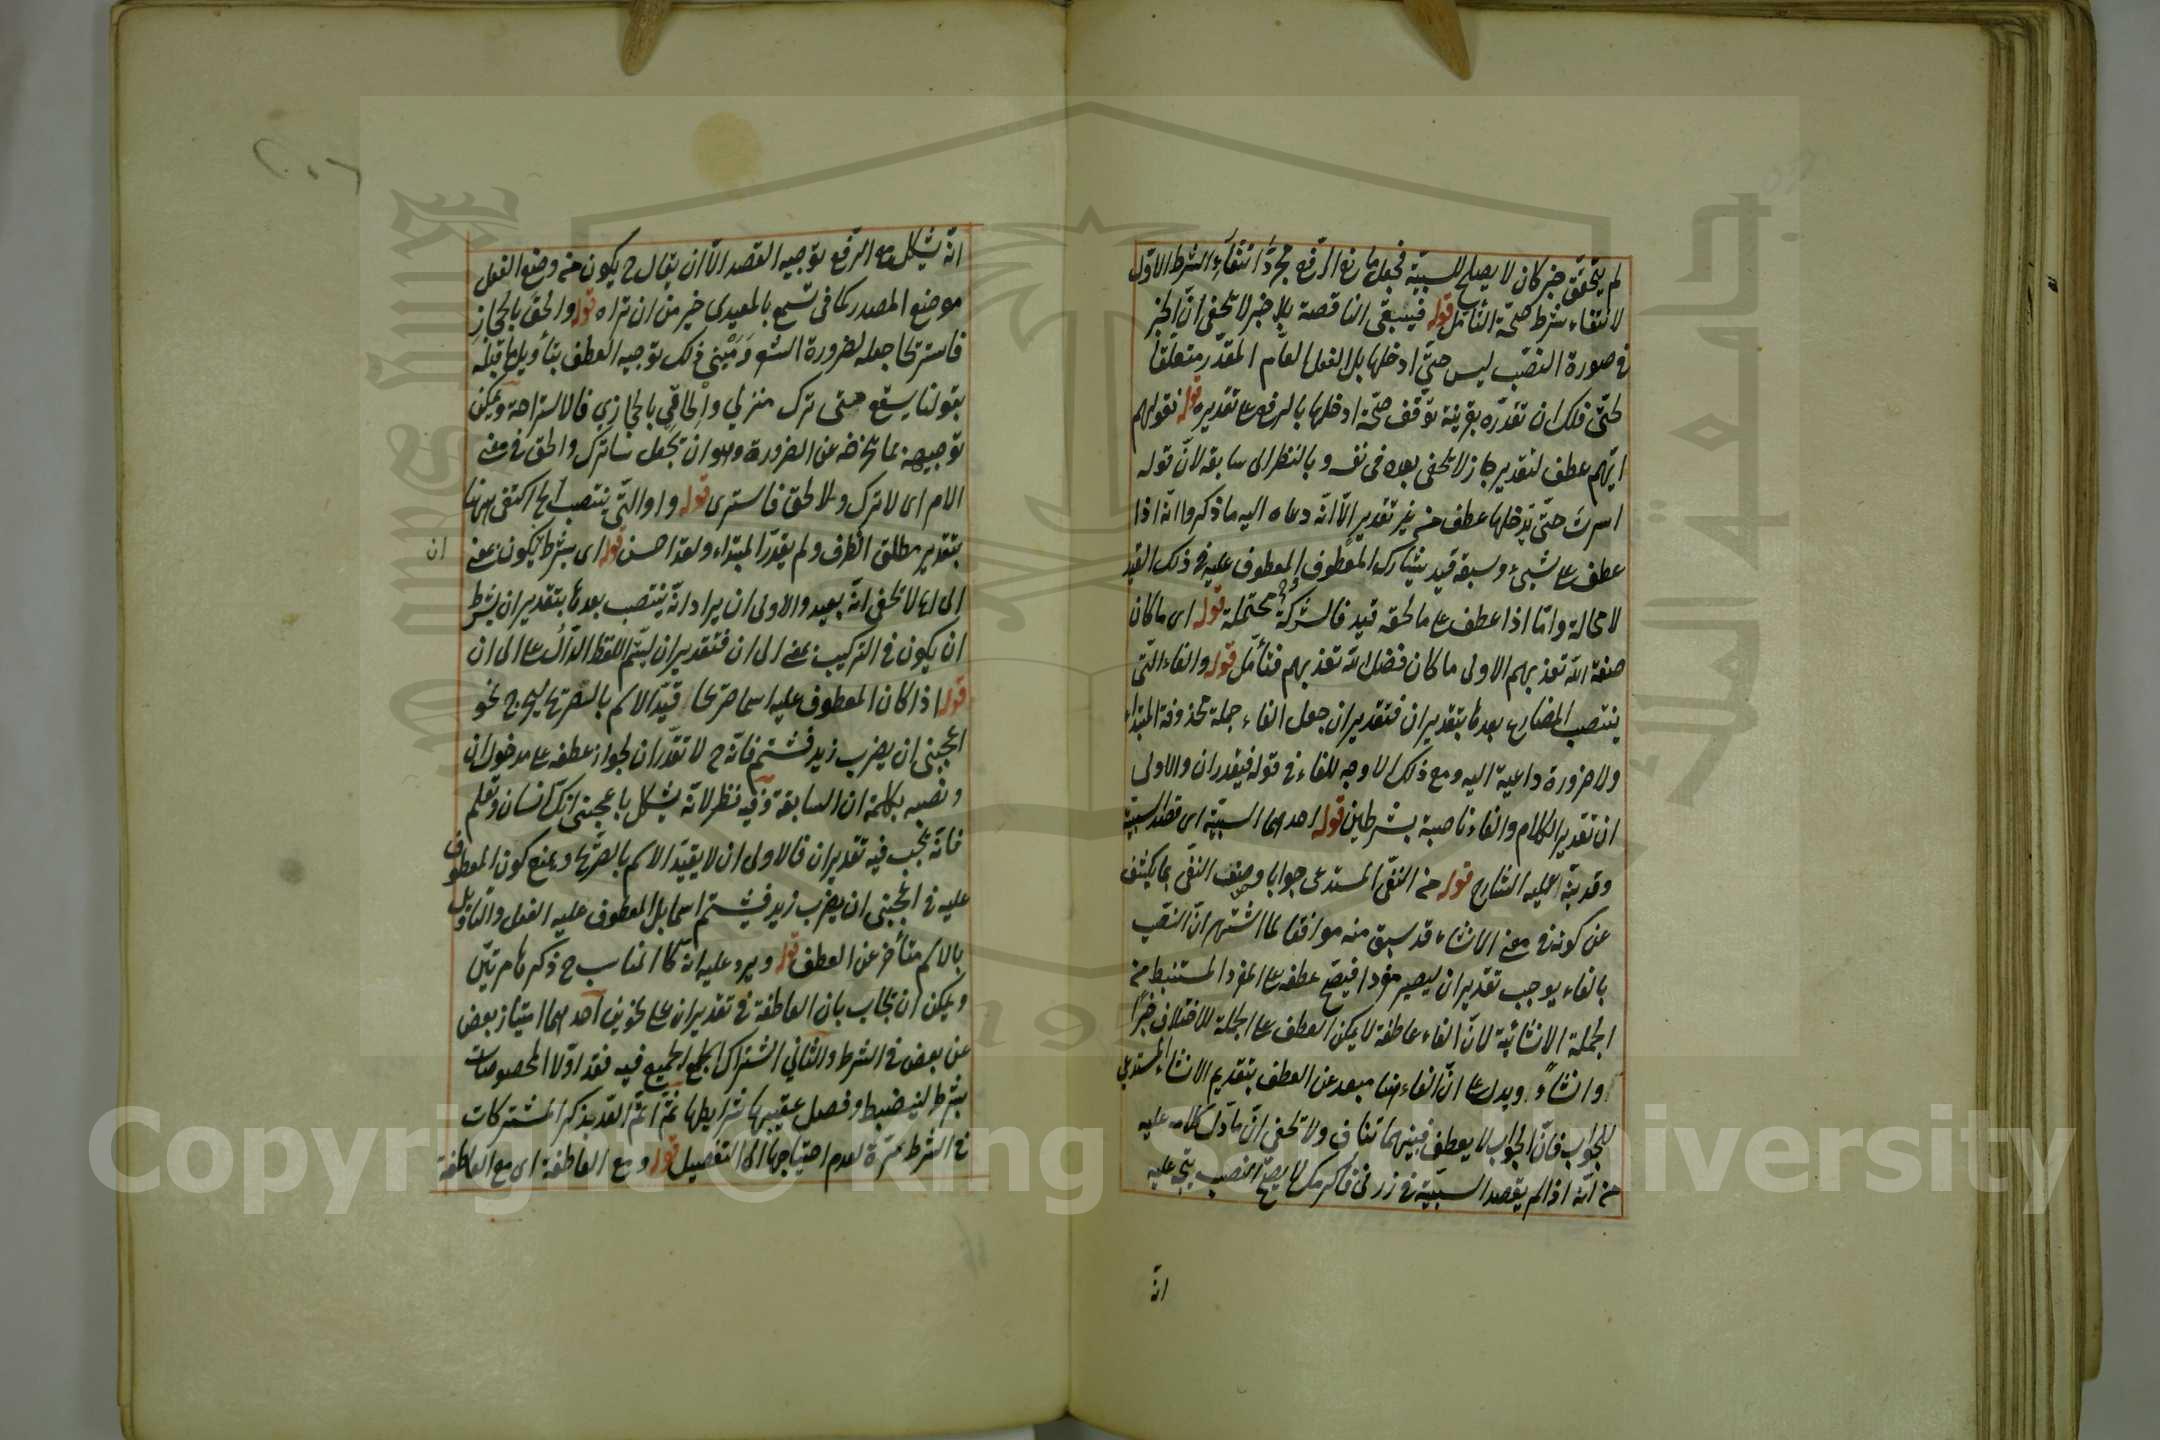 لم يتحقق خبر كان لا يصلح للسببية فجعل مانع الرفع مجرد انتفاء الشرط الاول
لانتفاء شرط صحة التأمل قوله فيبقى الناقصة بلا خبر لا يخفى ان الخبر
في صورة النصب ليس حتى ادخلها بل الفعل العام المقدر متعلقا
لحتى فلك ان تقدره بقرينة توقف صحة ادخلها بالرفع على تقديره قوله نقولهم
ايهم عطف لتقدير جاز لا يخفى بعده في نفسه وبالنظر الى سابقه لان قوله
اسرت حتى تدخلها عطف من غير تقدير الا انه دعاه اليه ما ذكروا انه اذا
عطف على شيء وسبقه قيد يشارك المعطوف المعطوف عليه في ذلك القيد
لا محالة واما اذا عطف على ما لحقه قيد فالشركة محتملة قوله اى ما كان
صفة الله تعذبهم الاولى ما كان فضل الله تعذبهم فتأمل قوله والفاء التى
ينتصب المضارع بعدها بتقدير ان فتقدير ان جعل الفاء جملة محذوفة المبتداء
ولا ضرورة داعية اليه ومع ذلك لا وجه للفاء في قوله فيقدر ان والاولى
ان تقدير الكلام والفاء ناصبة بشرطين قوله احدهما السببية اى قصد السببية
وقد نبه عليه الشارح قوله من النفى المستدعى جوابا وصف النفى بما يكشف
عن كونه في معنى الانشاء قد سبق منه موافقا لما اشتهر ان النصب
بالفاء يوجب تقدير ان ليصير مفردا فيصح عطفه على المفرد المستنبط من
الجملة الانشائية لان الفاء عاطفة لا يمكن العطف على الجملة للاختلاف خبرا
وانشاء ويدل على ان الفاء هنا مبعد عن العطف بتقديم الانشاء المستدعى
للجواب فان الجواب لا يعطف فبينهما تناف ولا يخفى ان ما دل كلامه عليه
من انه اذا لم يقصد السببية في زرنى فاكرمك لا يصح النصب يتجه عليه
انه
انه يشكل مع الرفع توجيه القصد الا ان يقال ح يكون من وضع الفعل
موضع المصدر كما فى تسمع بالمعيدى خير من ان تراه قوله والحق بالحجاز
فاستريحا جعله لضرورة الشعر ومبنى ذلك توجيه العطف بتأويل ما قبله
بقولنا يقع منى ترك منزلي والحاقي بالحجازي فالاستراحة ويمكن
توجيهه بما تخلص عن الضرورة وهو ان تجعل ساترك والحق في معنى
الامر اى لاترك ولالحق فاسترى قوله واو التى ينتصب الخ اكتفى ههنا
بتقدير مطلق الظرف ولم يقدر المبتداء ولقد احسن قوله اى بشرط يكون بمعنى
ان
الى ان لا يخفى انه بعيد والاولى ان يراد انه ينتصب بعدها بتقدير ان بشرط
ان يكون في التركيب بمعنى الى ان فتقدير ان ليتم اللفظ الدال على الى ان
قوله اذا كان المعطوف عليه اسما صريحا قيد الاسم بالصريح ليخرج نحو
اعجبنى ان يضرب زيد فيشتم فانه ح لا تقدر ان لجواز عطفه على مدخول ان
ونصبه بكلمة ان السابقة وفيه نظر لانه يشكل باعجبنى انك انسان وتعلم
فانه يجب فيه تقدير ان فالاولى ان لا يقيد الاسم بالصريح ويمنع كون المعطوف
عليه في اعجبنى ان يضرب زيد فيشتم اسما بل المعطوف عليه الفعل والتأويل
بالاسم متأخر عن العطف قوله ويرد عليه انه كان المناسب ح ذكرها مرتين
ويمكن ان يجاب بان العاطفة في تقدير ان على نحوين احدهما امتياز بعض
عن بعض في الشرط والثاني اشتراك الجميع فيه فقد اولا المخصوصات
بشرط لينضبط وفصل عقيبها شرايطها ثم اتم العد بذكر المشتركات
في الشرط مرة لعدم احتياجها الى التفصيل قوله ومع العاطفة اى مع العاطفة
Copyright © King Saud University